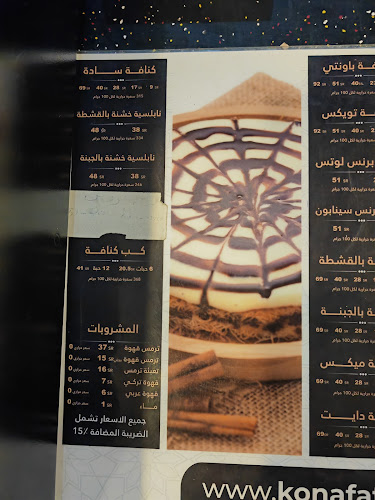 كنافة سادة
9 SR 17 SR 28 SR 40 SR 69 SR
355 سعرة حرارية لكل 100 جرام
نابلسية خشنة بالقشطة
38 SR 48 SR
334 سعرة حرارية لكل 100 جرام
نابلسية خشنة بالجبنة
38 SR 48 SR
246 سعرة حرارية لكل 100 جرام
كب كنافة
6 حبات 20.5 SR 12 حبة 41 SR
368 سعرة حرارية لكل 100 جرام
المشروبات
ترمس قهوة 37 SR سعر حراري 0
ترمس قهوة 15 SR سعر حراري 0
تعبئة ترمس 16 SR سعر حراري 0
قهوة تركي 7 SR سعر حراري
قهوة عربي 6 SR سعر حراري 0
مـاء 1 SR سعر حراري 0
جميع الاسعار تشمل
الضريبة المضافة 15٪
فة باونتي
51 SR 92 SR
ة تويكس
28 SR 40 SR 51 SR
سعرة حرارية لكل 100 جرام
برنس لوتس
51 SR
سعرة حرارية لكل 100 جرام
رنس سينابون
51 SR
سعرة حرارية لكل 100 جرام
ة بالقشطة
28 SR 40 SR 69 SR
سعرة حرارية لكل 100 جرام
ة بالجبنة
28 SR 40 SR 69 SR
سعرة حرارية لكل 100 جرام
ة ميكس
28 SR 40 SR 69 SR
سعرة حرارية لكل 100 جرام
ة دايت
40 SR 69 SR
www.konafa